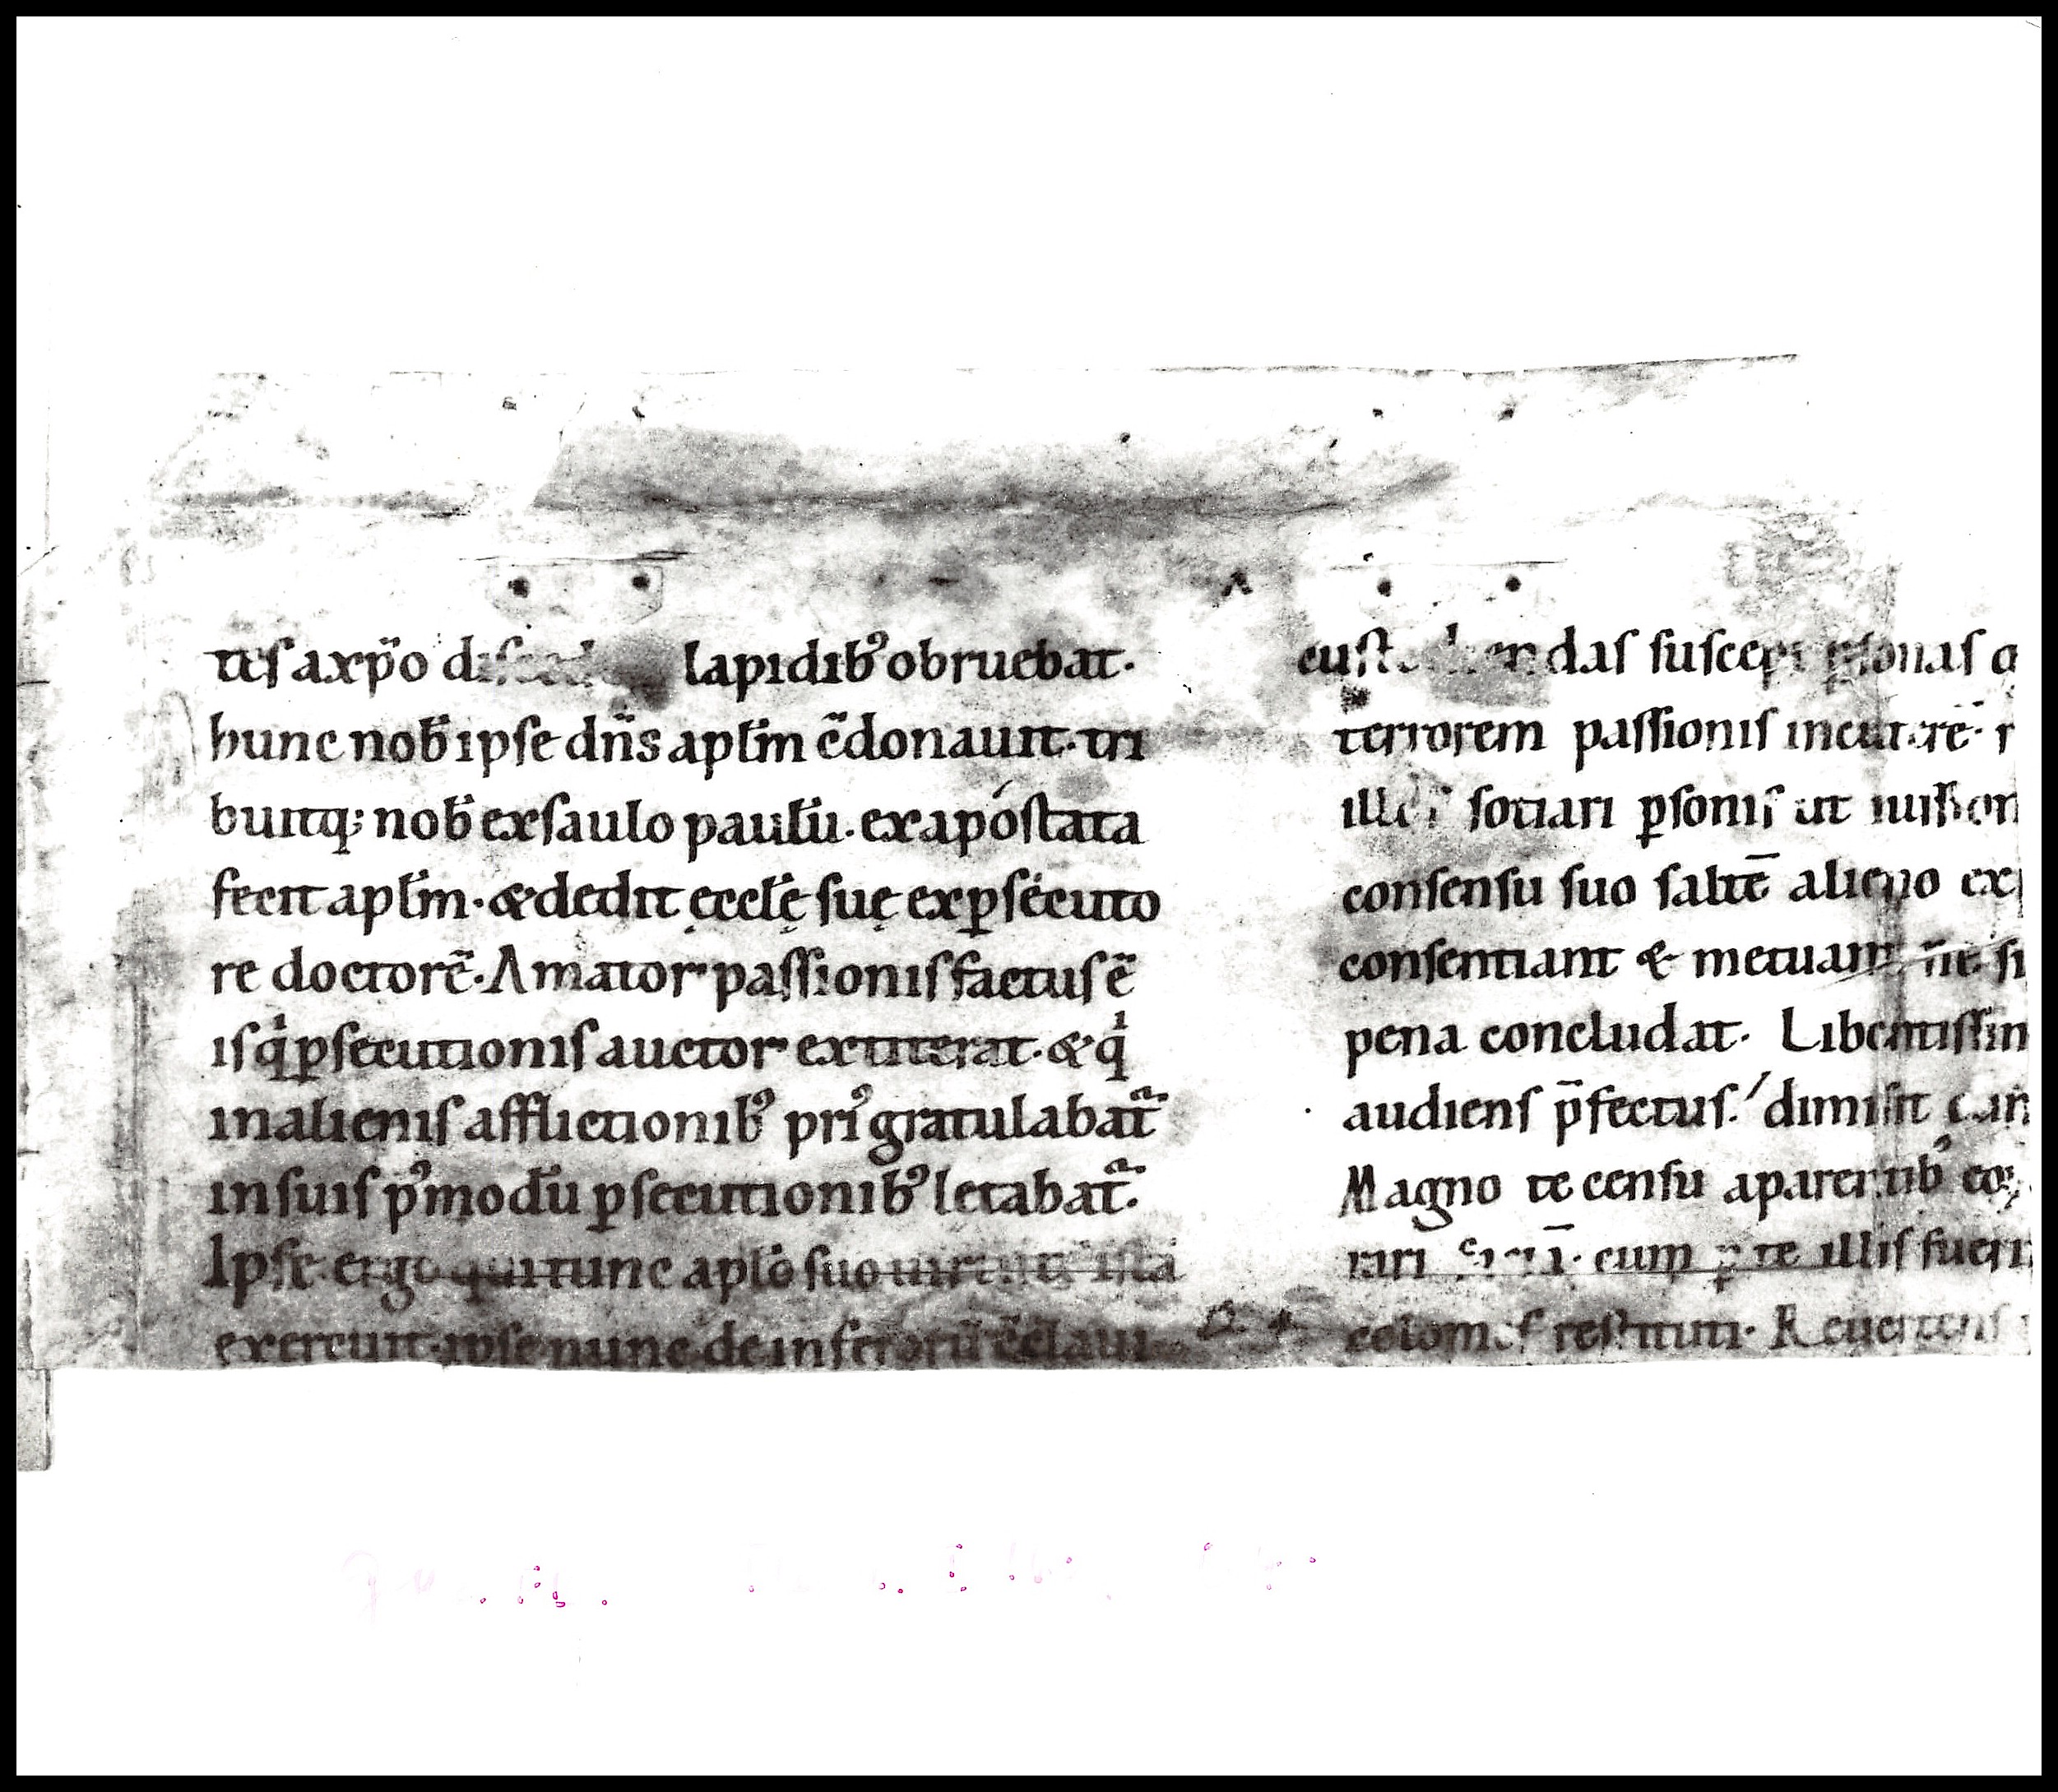 tes a xp̄o lapidib⁹ obruebat.
hunc nob̄ ipse dn̄s apl̄m c̄donauit. tri
buitq; nob̄ ex saulo paulū. ex apostata
fecit apl̄m. & dedit eccl̄ę suę ex ꝑsecuto
re doctorē. Amator passionis factus ē
is qͥ ꝑsecutionis auctor extiterat. & qͥ
in alienis afflictionib⁹ pri⁹ gratulabat᷑
in suis p⁹modū ꝑsecutionib⁹ letabat᷑.
Ipse ergo qui tunc apl̄o suo ista
exercuit. ipse nunc de
das suscepi ꝑsonas
terrorem passionis
sotiari ꝑsonis ut
consensu suo saltē alieno
consentiant & metuant ne
pena concludat. Libentissim
audiens p̄fectus. dimisit
Magno te censu a parentib⁹
cum illis
restituti. Reuertens